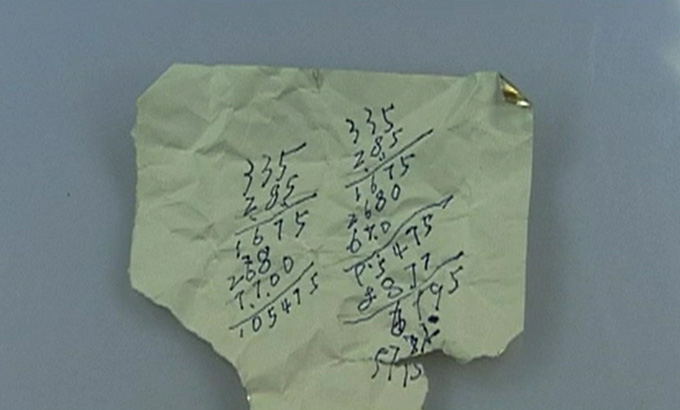 335
285
1675
268
7700
105475
335
285
1675
2680
670
95475
8877